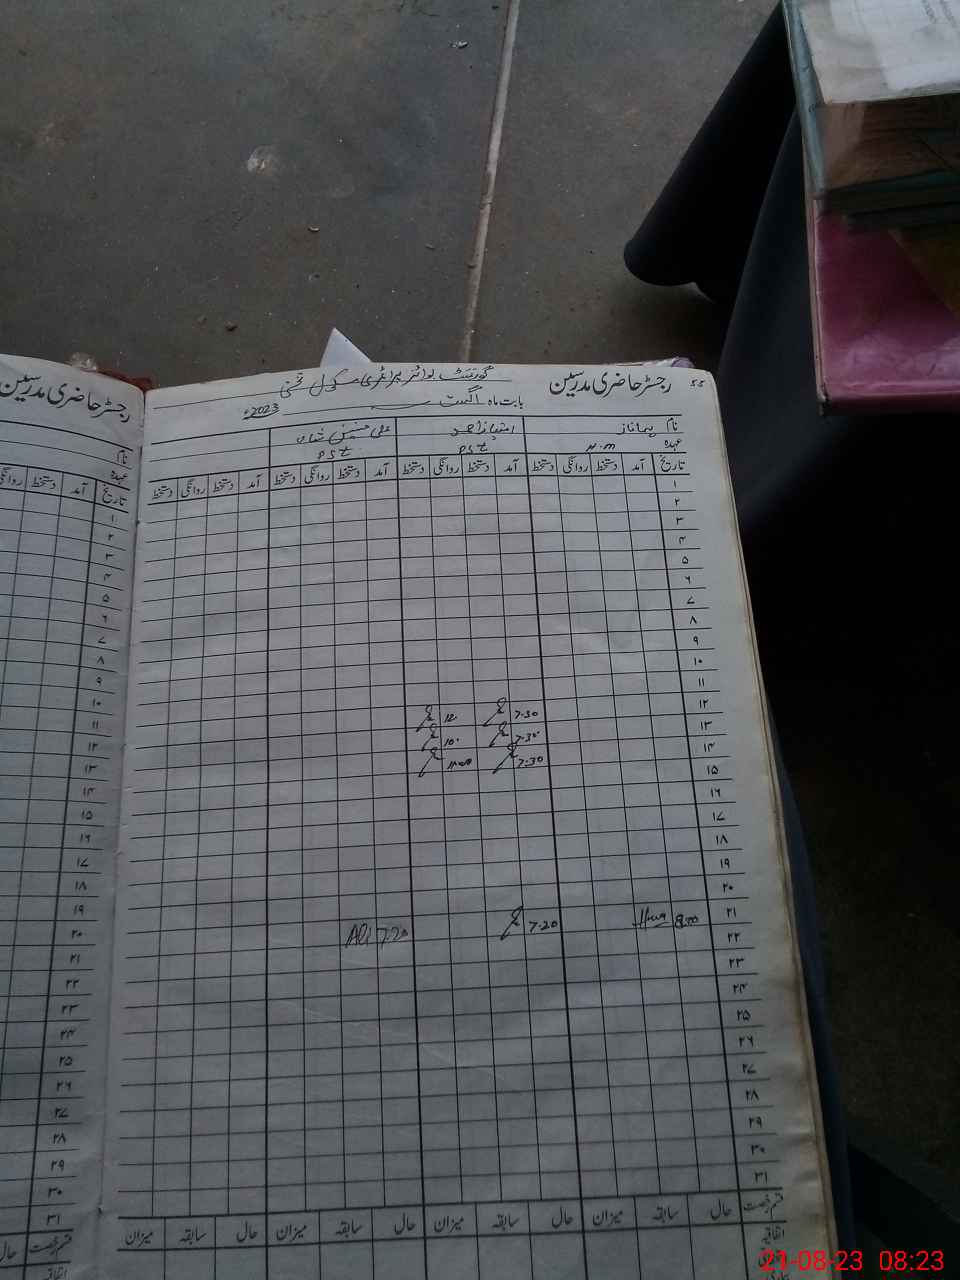 رجسٹر حاضری مدرسین
۵۵ رجسٹر حاضری مدرسین گورنمنٹ بوائز پرائمری سکول
بابت ماہ اگست 2023ء
نام امتیاز احمد علی حسنین شاہ
عہدہ PST PST
تاریخ آمد دستخط روانگی دستخط آمد دستخط روانگی دستخط آمد دستخط روانگی دستخط آمد دستخط روانگی دستخط
۱
۲
۳
۴
۵
۶
۷
۸
۹
۱۰
۱۱
۱۲
۱۳ 7.30 12
۱۴ 7.30 10
۱۵ 7.30
۱۶
۱۷
۱۸
۱۹
۲۰
۲۱ 8:00 7.20 7.20 Ali
۲۲
۲۳
۲۴
۲۵
۲۶
۲۷
۲۸
۲۹
۳۰
۳۱
قسم رخصت حال سابقہ میزان حال سابقہ میزان حال سابقہ میزان حال سابقہ میزان
اتفاقیہ
نام
عہدہ
تاریخ آمد دستخط روانگی
۱
۲
۳
۴
۵
۶
۷
۸
۹
۱۰
۱۱
۱۲
۱۳
۱۴
۱۵
۱۶
۱۷
۱۸
۱۹
۲۰
۲۱
۲۲
۲۳
۲۴
۲۵
۲۶
۲۷
۲۸
۲۹
۳۰
۳۱
قسم رخصت حال
اتفاقیہ
21-08-23 08:23